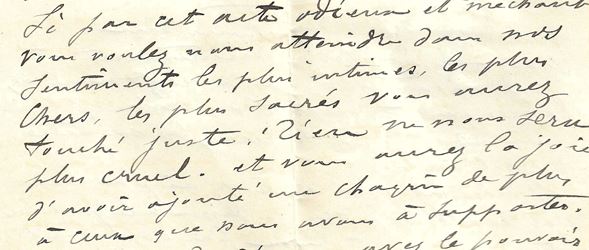 Si par cet acte odieux et méchant
vous voulez nous atteindre dans nos
sentiments les plus intimes, les plus
chers, les plus sacrés vous aurez
touché juste! Rien ne nous sera
plus cruel. et vous aurez la joie
d'avoir ajouté un chagrin de plus
à ceux que nous avons à supporter.
avec le pouvoir